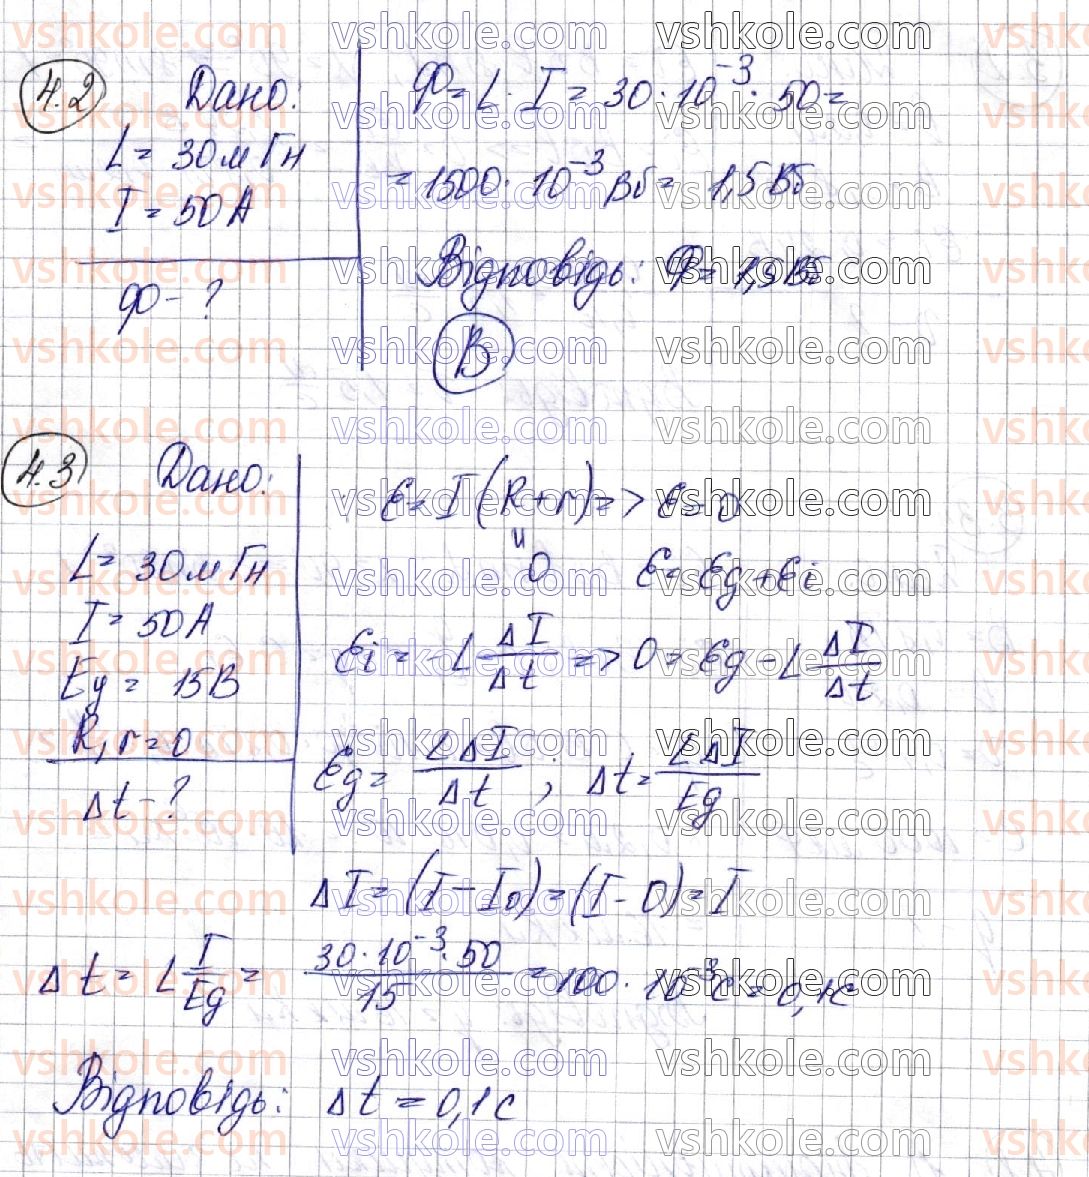 4.2 Дано:
L = 30 мГн
I = 50 А
Ф - ?
Ф = L · I = 30 · 10⁻³ · 50 =
= 1500 · 10⁻³ Вб = 1,5 Вб
Відповідь: Ф = 1,5 Вб
В
4.3 Дано:
L = 30 мГн
I = 50 А
Eg = 15 В
R, r = 0
Δt - ?
Ɛ = I (R + r) => Ɛ = 0
" 0
Ɛ = Ɛg + Ɛi
Ɛi = - L ΔI/Δt => 0 = Ɛg - L ΔI/Δt
Ɛg = LΔI/Δt ; Δt = LΔI/Eg
ΔI = (I - I₀) = (I - 0) = I
Δt = L I/Eg = 30 · 10⁻³ · 50/15 = 100 · 10⁻³ с = 0,1 с
Відповідь: Δt = 0,1 с
vshkole.com